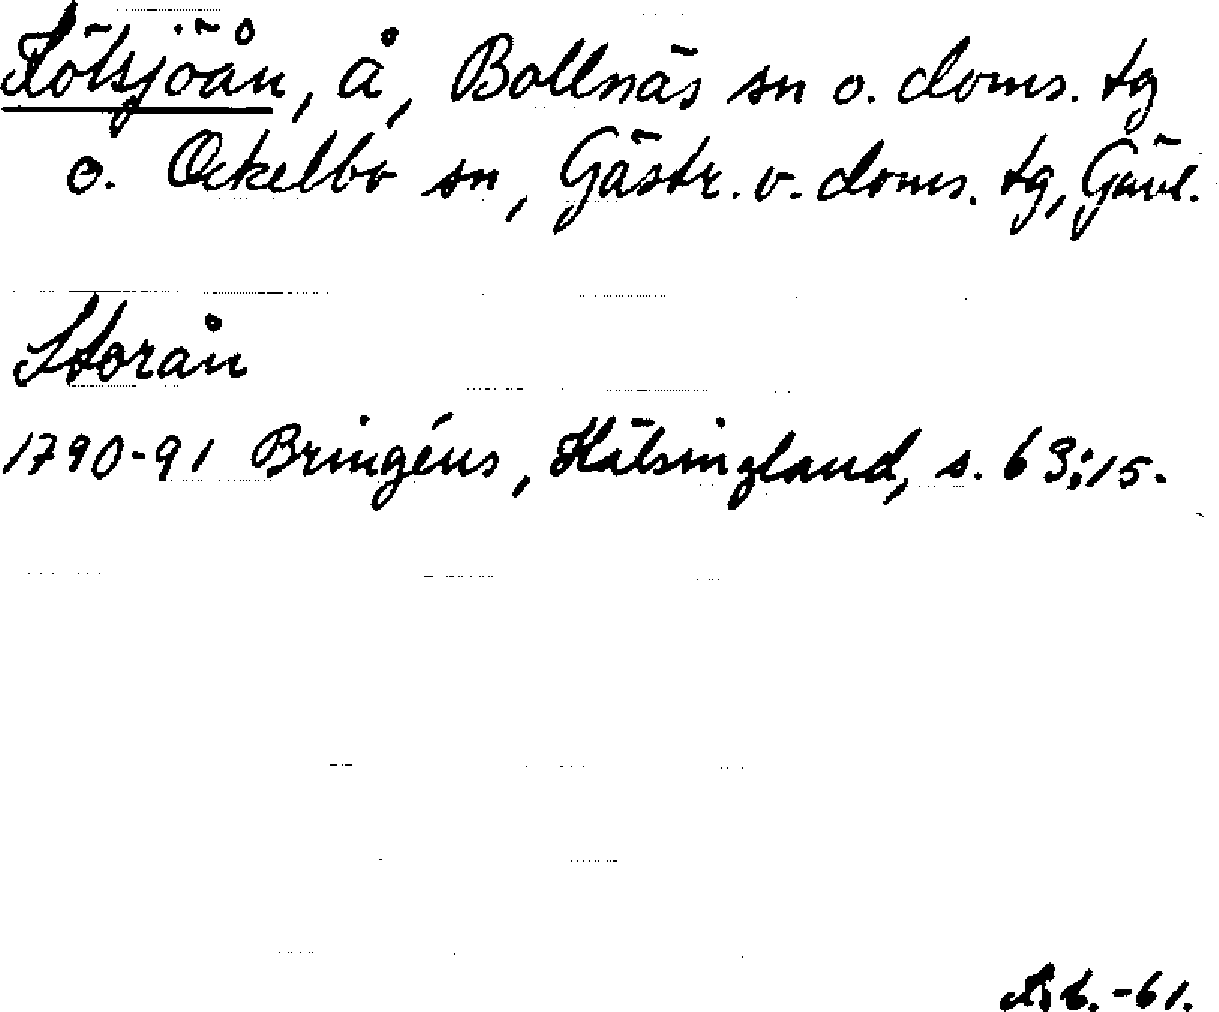 Rötsjöån, å, Bollnäs sn o. doms. tg
o. Ockelbo sn, Gästr. v. doms. tg, Gävl.
Storån
1790-91 Bringéus, Hälsingland, s. 63;15.
-61.